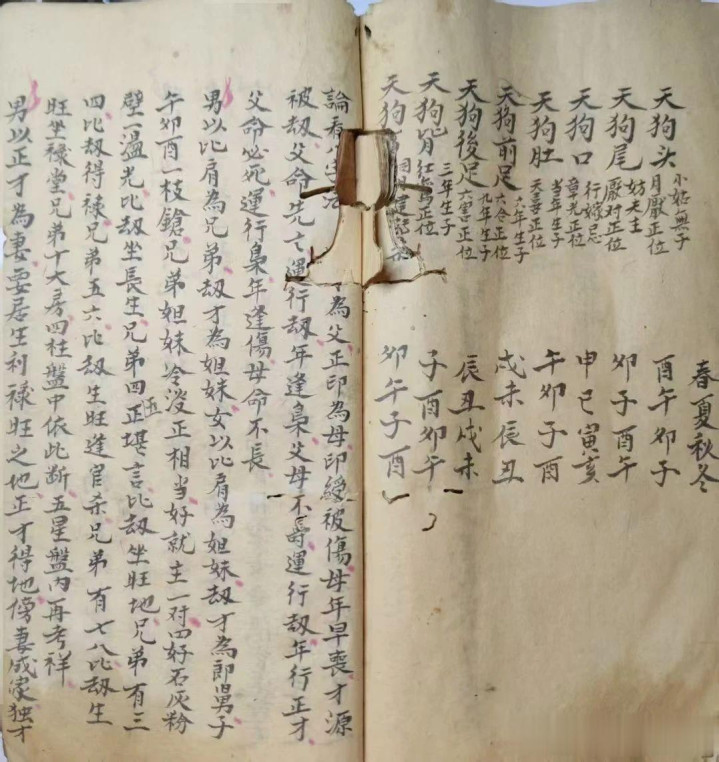 春夏秋冬
天狗头 月厭正位 小姑無子 酉午卯子
天狗尾 厭对正位 妨夫主 卯子酉午
天狗口 章光正位 行嫁忌 申巳寅亥
天狗肚 天喜正位 当年生子 午卯子酉
天狗前足 六合正位 六年生子 戌未辰丑
天狗後足 六害正位 九年生子 辰丑戌未
天狗背 红鸾正位 三年生子 子酉卯午
天狗 卯午子酉
論看 為父正印為母印綬被傷母年早喪才源
被劫父命先亡運行劫年逢梟父母不長寿運行劫年行正才
父命必死運行梟年逢傷母命不長
男以比肩為兄弟劫才為姐妹女以比肩為姐妹劫才為郎舅子
午卯酉一枝鎗兄弟姐妹冷没正相当好就主一对四好石灰粉
壁一温光比劫坐長生兄弟四五正堪言比劫坐旺地兄弟有三
四比劫得祿兄弟五六比劫生旺逢官杀兄弟有七八比劫生
旺坐祿堂兄弟十大房四柱盤中依此断五星盤内再考祥
男以正才為妻要居生利祿旺之地正才得地傍妻成家独才